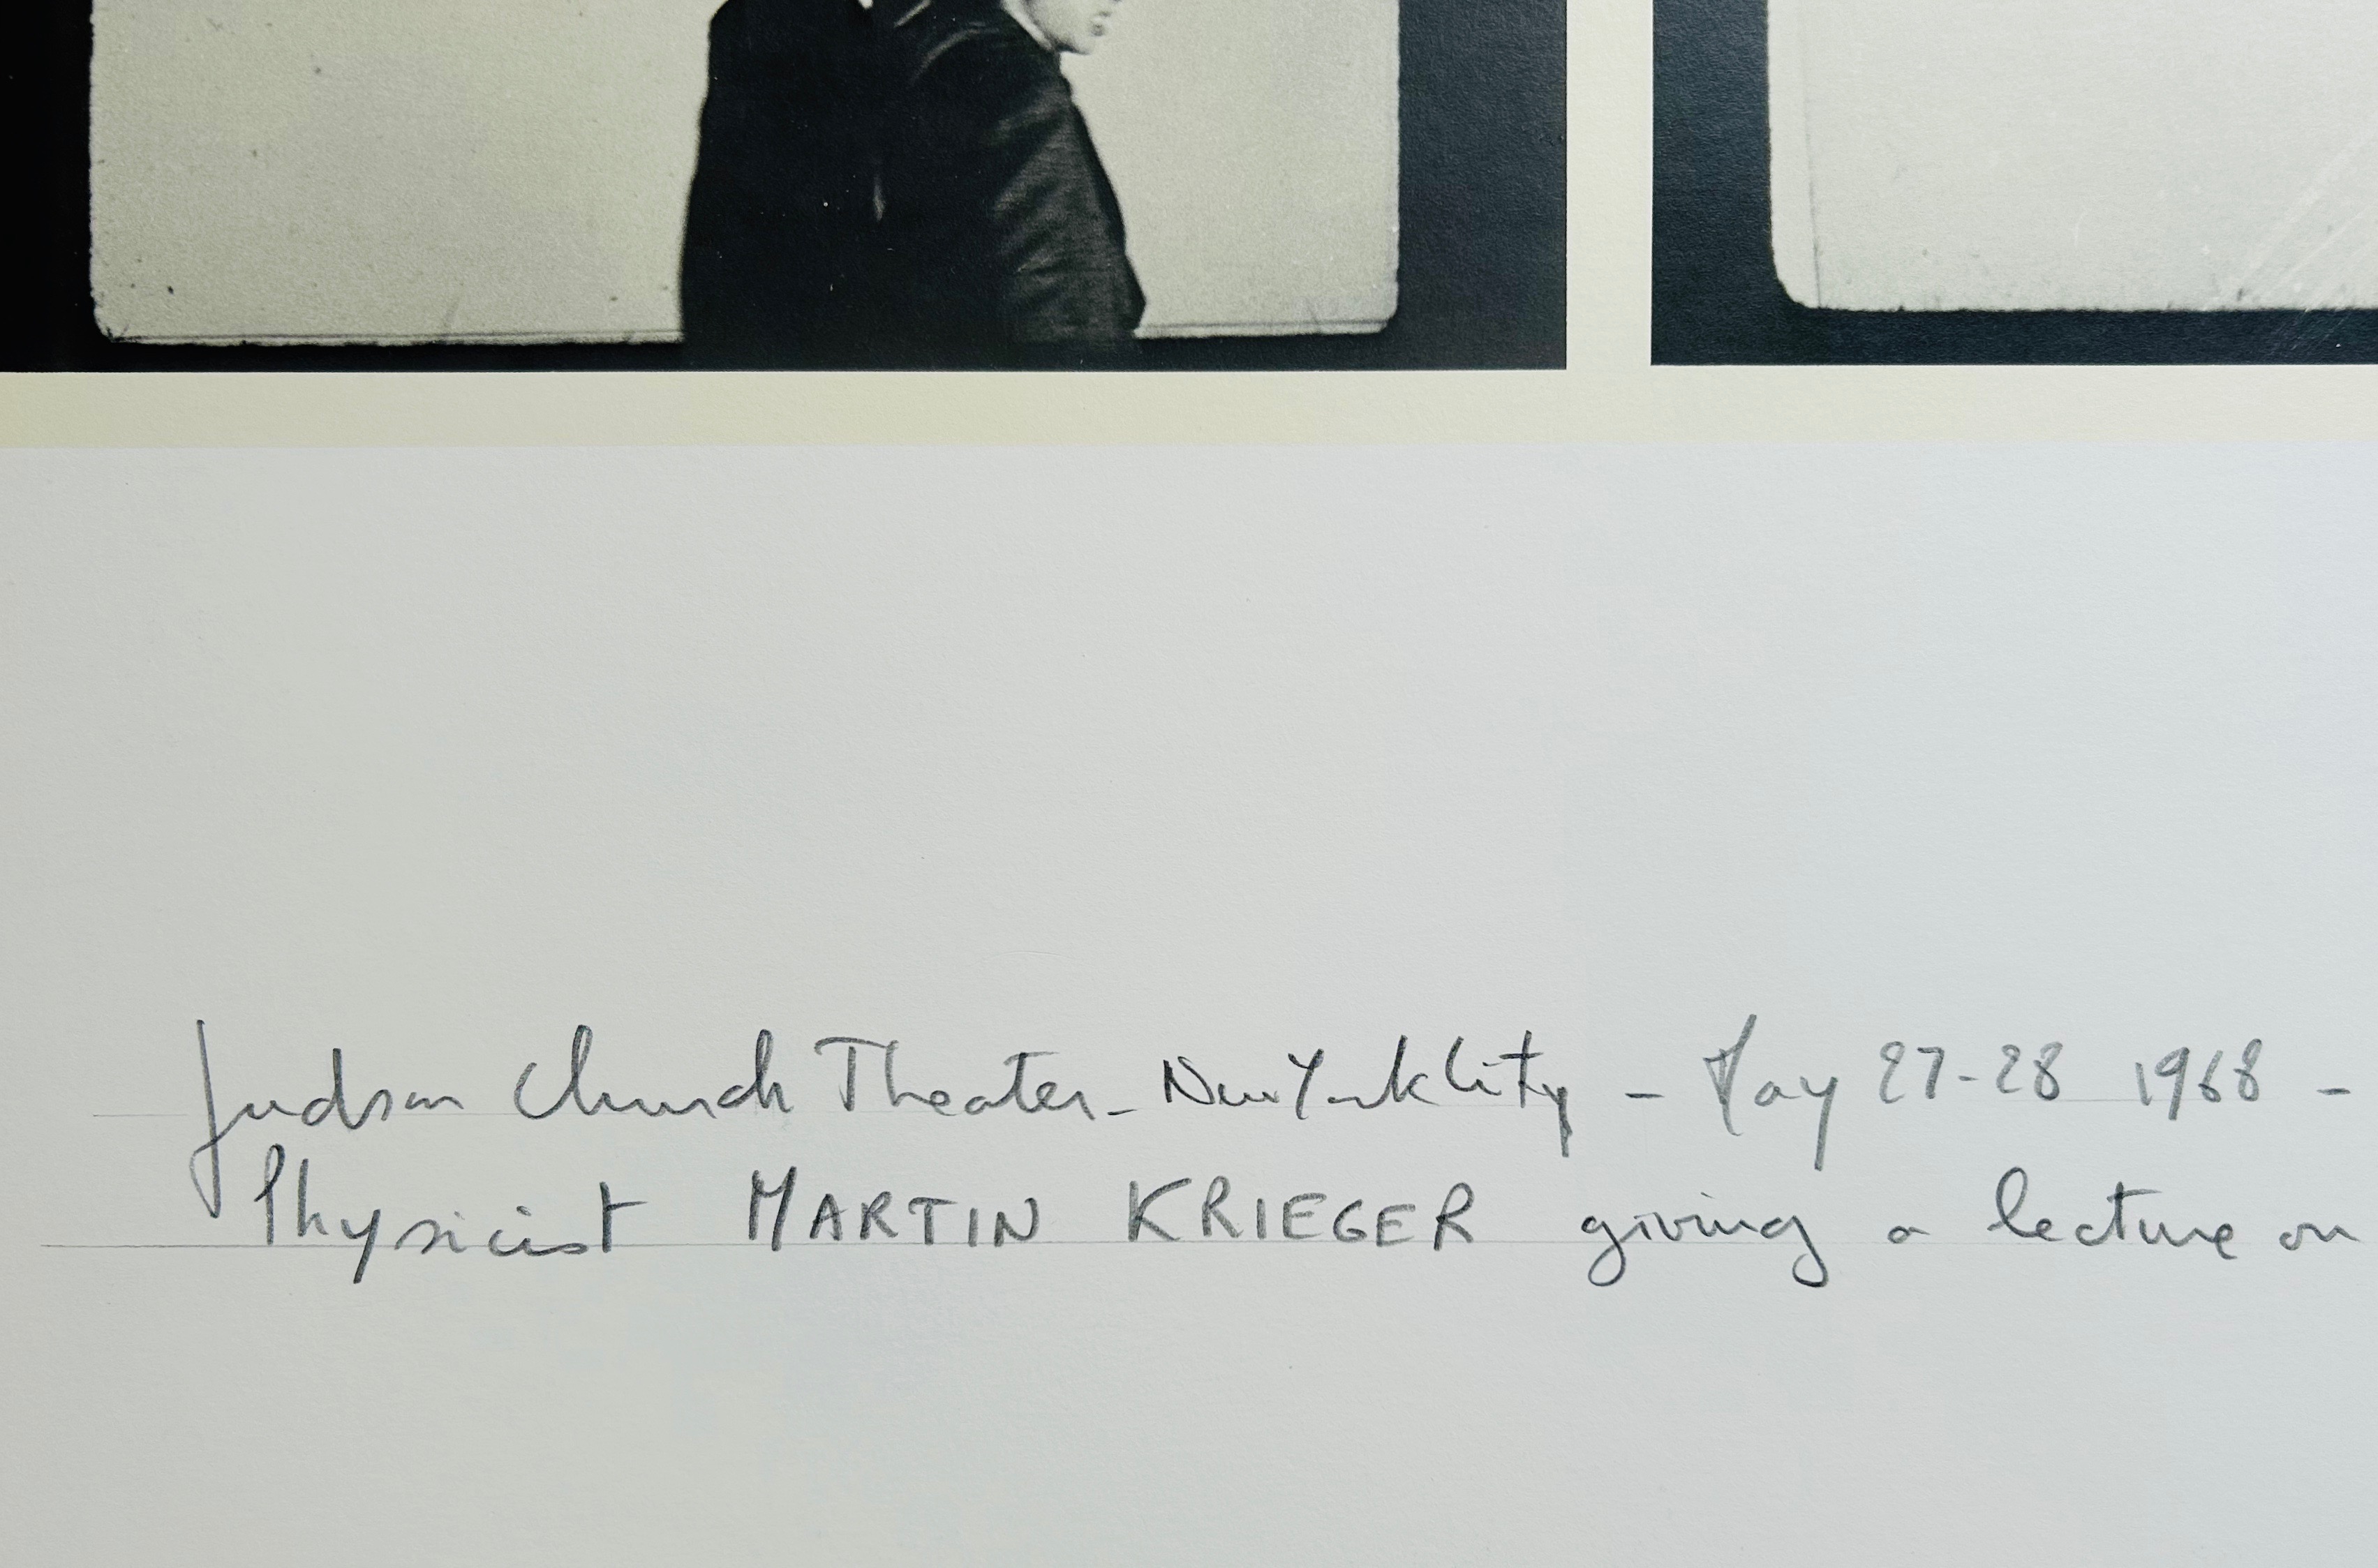 Judson Church Theater - New York City - May 27-28 1968 -
Physicist MARTIN KRIEGER giving a lecture on